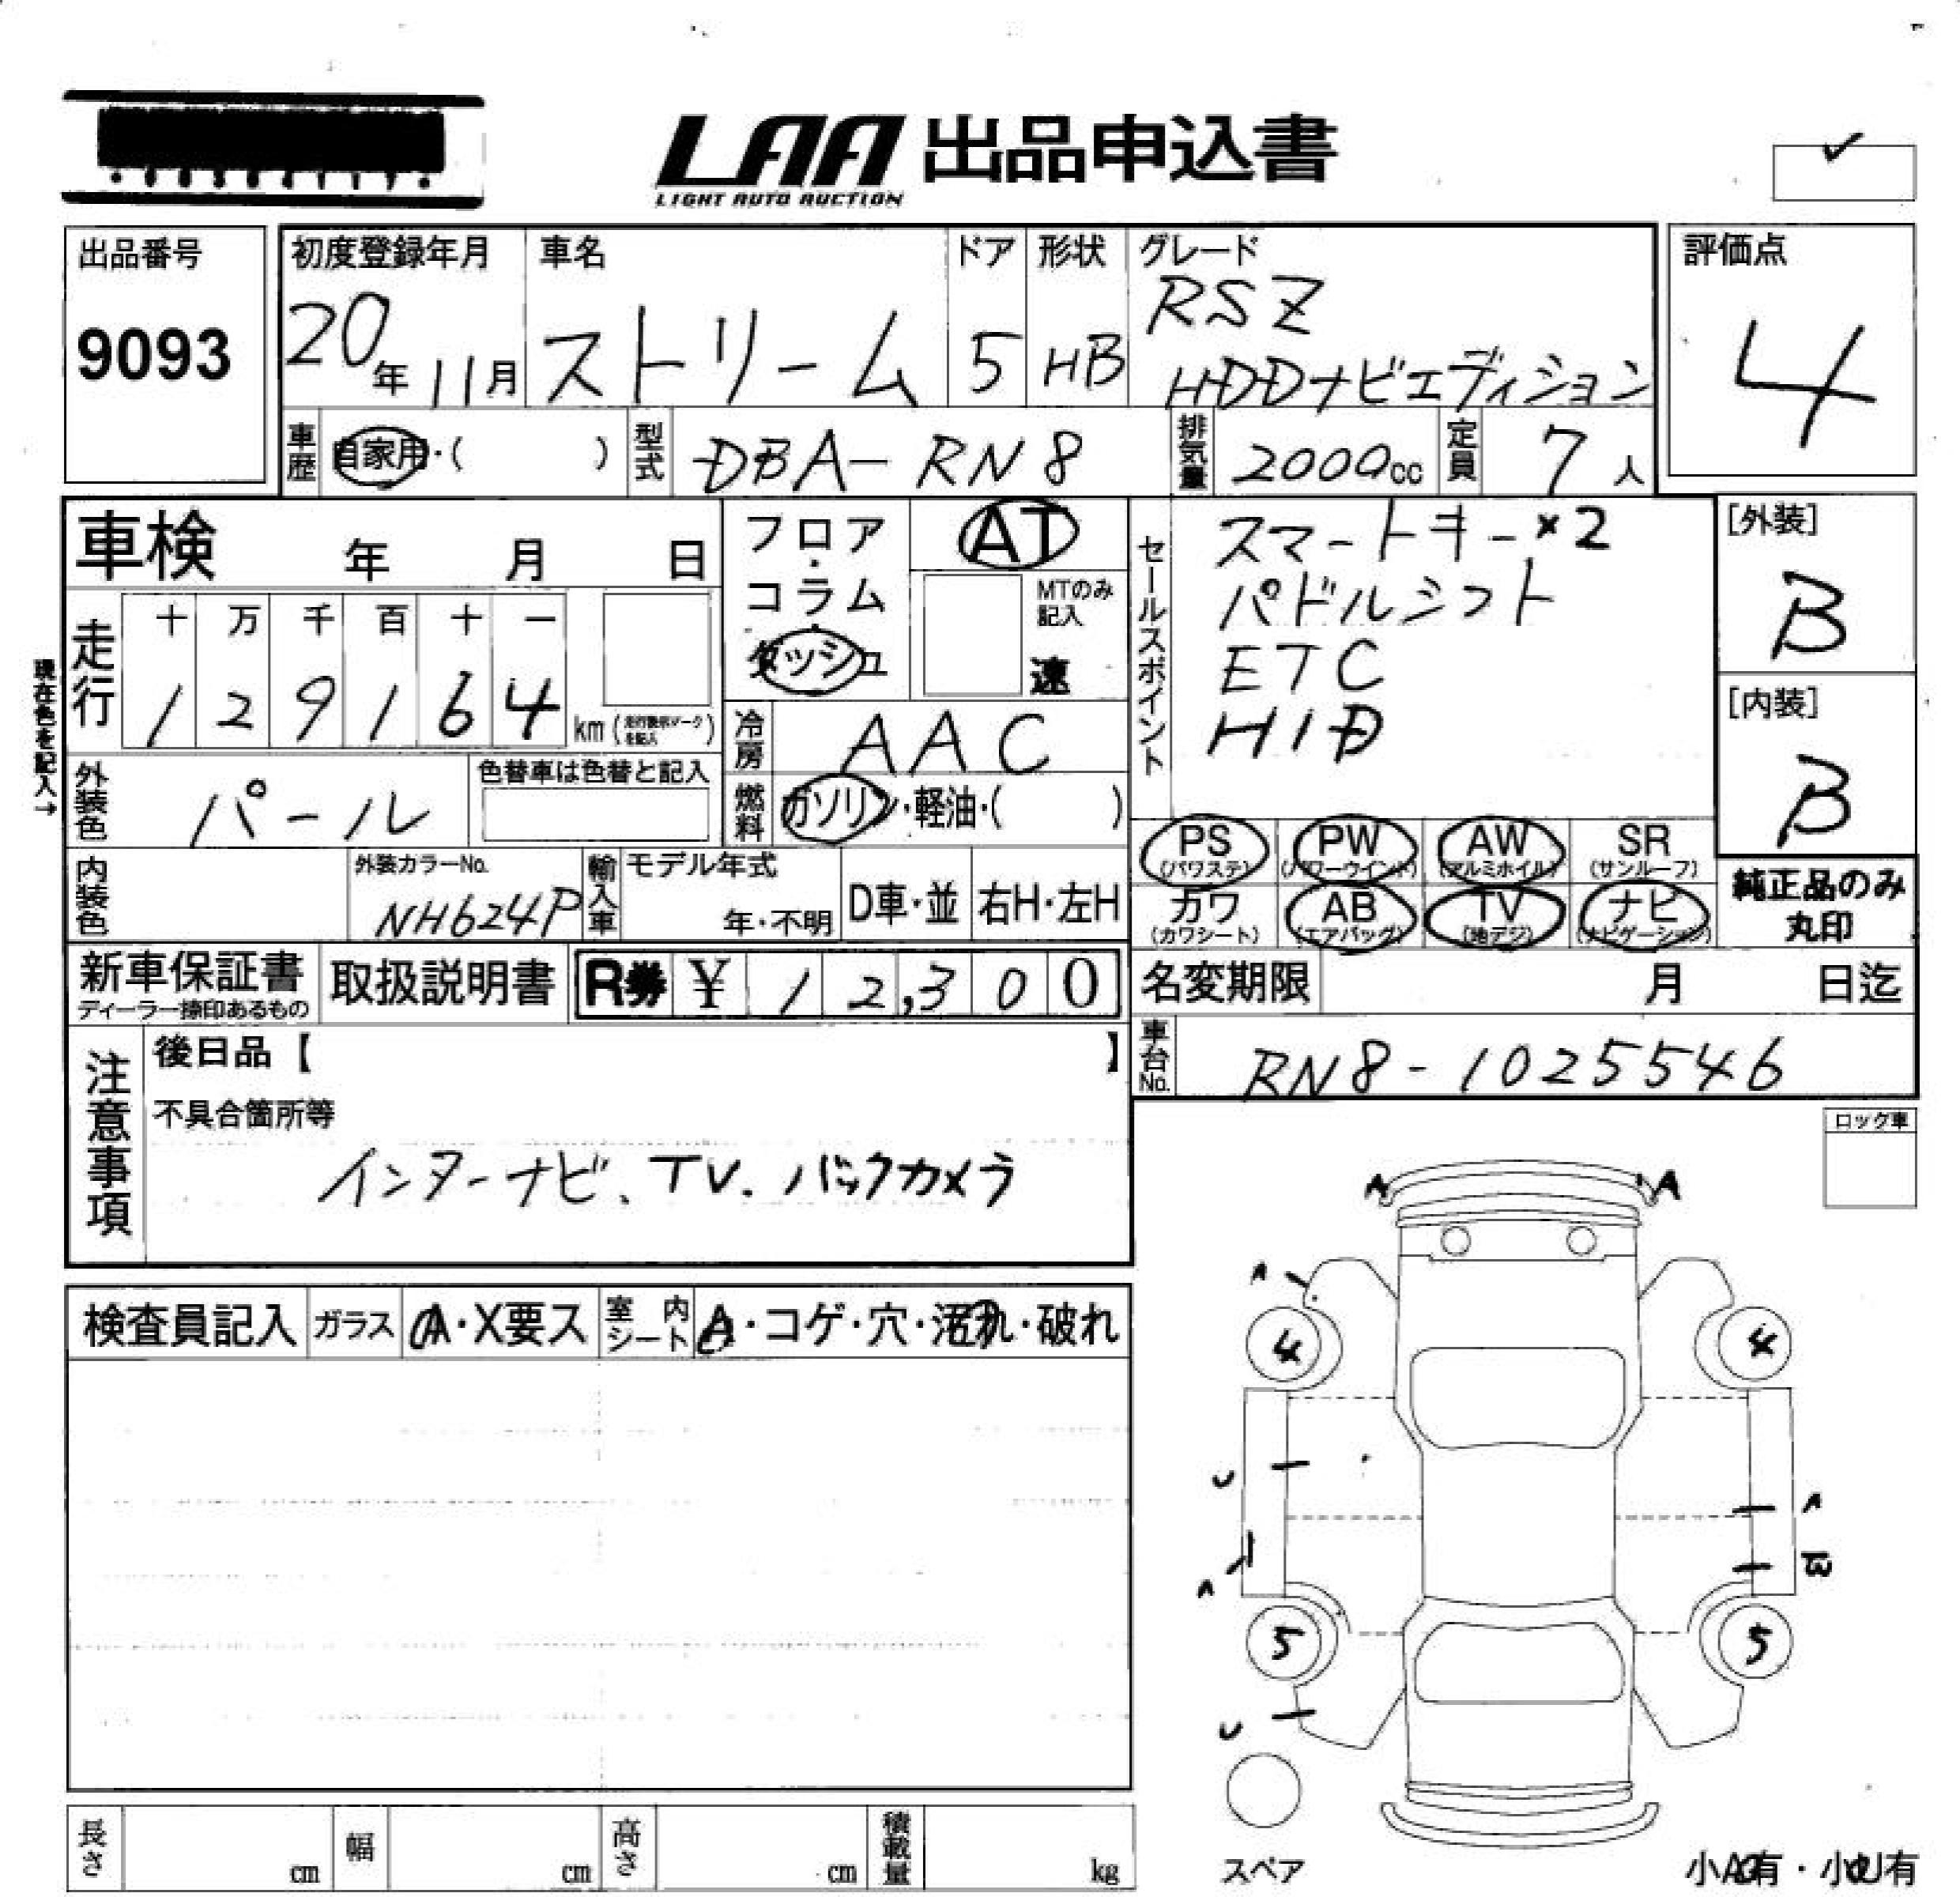 LAA 出品申込書
LIGHT AUTO AUCTION
出品番号
9093
初度登録年月
20年11月
車名
ストリーム
ドア
5
形状
HB
グレード
RSZ
HDDナビエディション
評価点
4
車歴 自家用・( )
型式 DBA-RN8
排気量 2000cc
定員 7人
車検 年 月 日
フロア・コラム・ダッシュ
AT
MTのみ記入
速
セールスポイント
スマートキー×2
パドルシフト
ETC
HID
[外装]
B
[内装]
B
現在色を記入→
走行
十 万 千 百 十 一
1 2 9 1 6 4 km
冷房 AAC
外装色 パール
色替車は色替と記入
燃料 ガソリン・軽油・( )
PS (パワステ)
PW (パワーウインド)
AW (アルミホイル)
SR (サンルーフ)
カワ (カワシート)
AB (エアバッグ)
TV (地デジ)
ナビ (ナビゲーション)
純正品のみ
丸印
内装色
外装カラーNo.
NH624P
輸入車
モデル年式
年・不明
D車・並
右H・左H
新車保証書
ディーラー捺印あるもの
取扱説明書
R券 ¥ 12,300
名変期限 月 日迄
車台No. RN8-1025546
注意事項
後日品【 】
不具合箇所等
インターナビ、TV、バックカメラ
ロック車
検査員記入
ガラス A・X要ス
室内シート A・コゲ・穴・汚れ・破れ
A A
A
4 4
U
A
A
5 5
U
スペア
小A有・小U有
長さ cm
幅 cm
高さ cm
積載量 kg